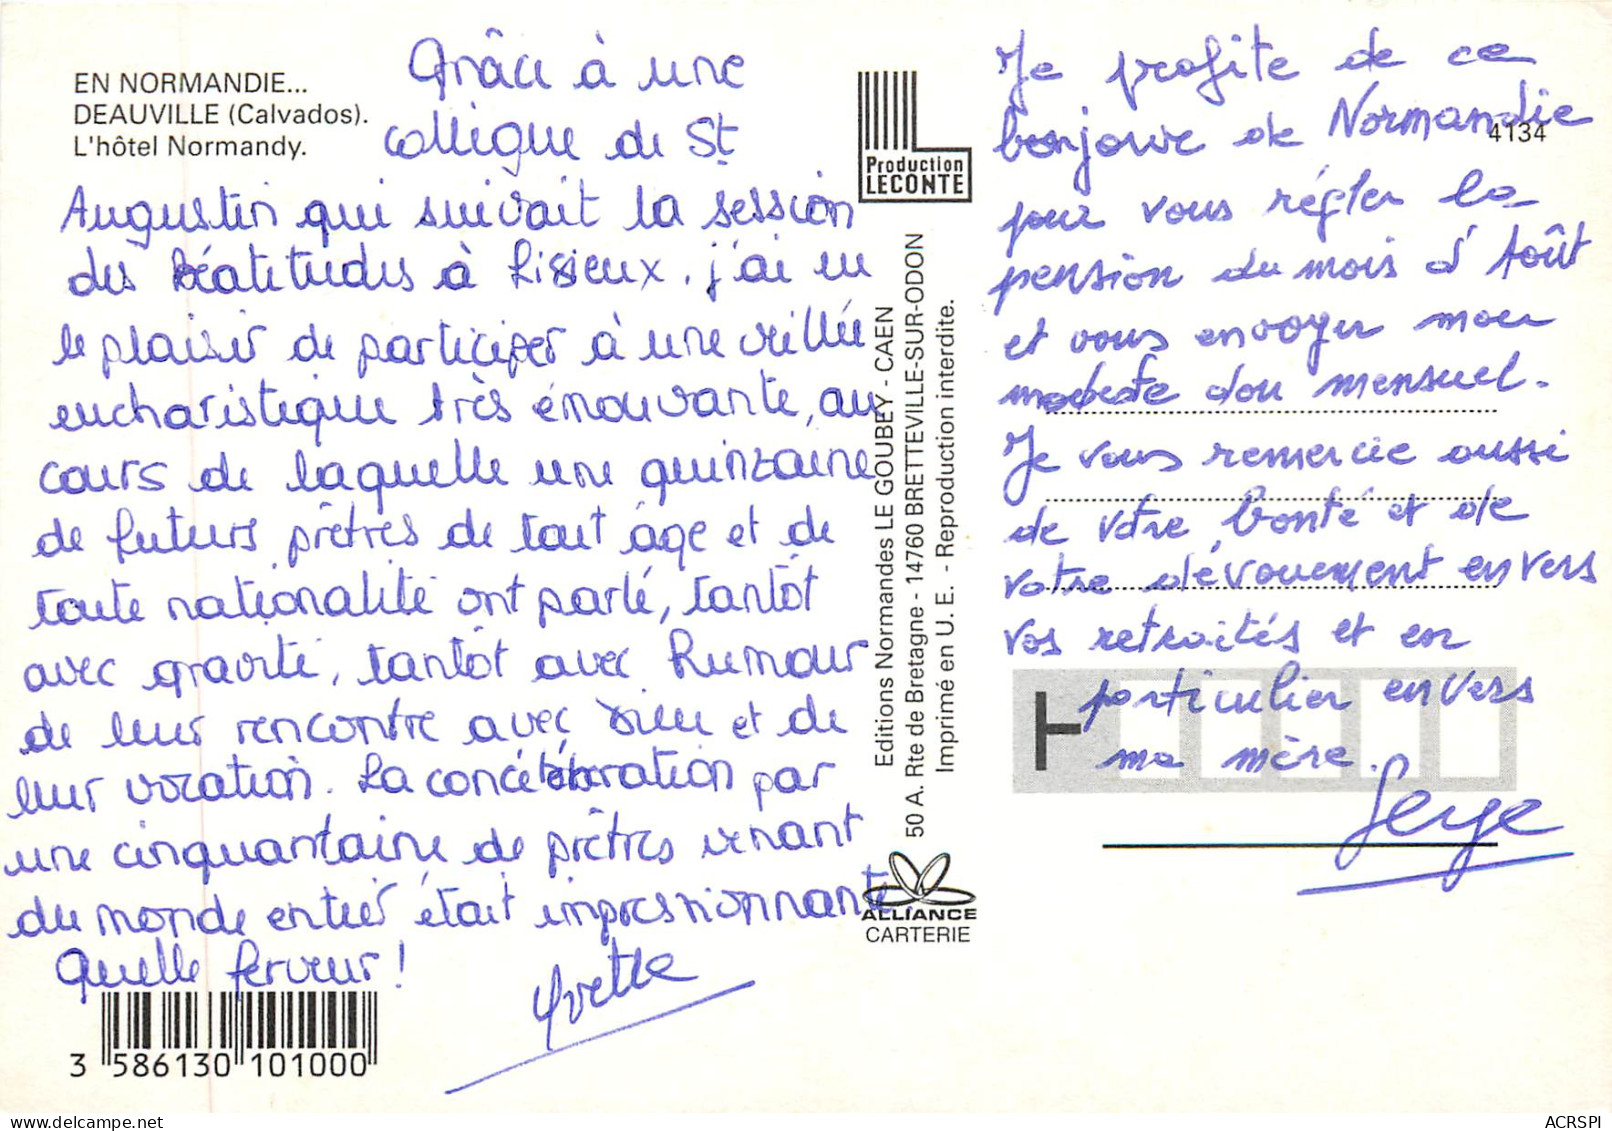 EN NORMANDIE...
DEAUVILLE (Calvados).
L'hôtel Normandy.
Grâce à une
collègue de St
Augustin qui suivait la session
des Béatitudes à Lisieux, j'ai eu
le plaisir de participer à une veillée
eucharistique très émouvante, au
cours de laquelle une quinzaine
de futurs prêtres de tout âge et de
toute nationalité ont parlé, tantôt
avec gravité, tantôt avec Humour
de leur rencontre avec Dieu et de
leur vocation. La concélébration par
une cinquantaine de prêtres venant
du monde entier était impressionnante
Quelle ferveur !
Yvette
3 586130 101000
Production
LECONTE
Editions Normandes LE GOUBEY - CAEN
50 A. Rte de Bretagne - 14760 BRETTEVILLE-SUR-ODON
Imprimé en U. E. - Reproduction interdite.
ALLIANCE
CARTERIE
4134
Je profite de ce
bonjour de Normandie
pour vous régler la
pension du mois d'Août
et vous envoyer mon
modeste don mensuel.
Je vous remercie aussi
de votre bonté et de
votre dévouement envers
vos retraités et en
particulier envers
ma mère.
Serge
ACRSPI